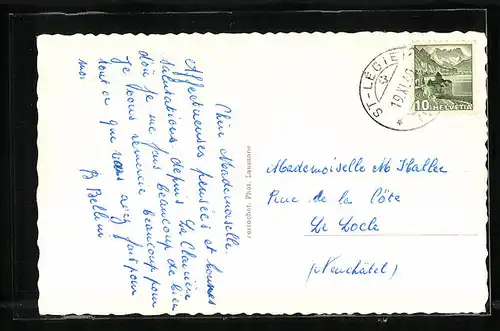 Chère Mademoiselle.
Affectueuses pensées et bonnes
salutations depuis La
d'où je me fais beaucoup de bien
Je vous remercie beaucoup pour
tout ce que vous avez fait pour
moi
B Bellini
Perrochet, Phot. Lausanne
ST-LÉGIE
19.XI
10 HELVETIA
Mademoiselle M Haller
Rue de la Côte
Le Locle
(Neuchâtel)